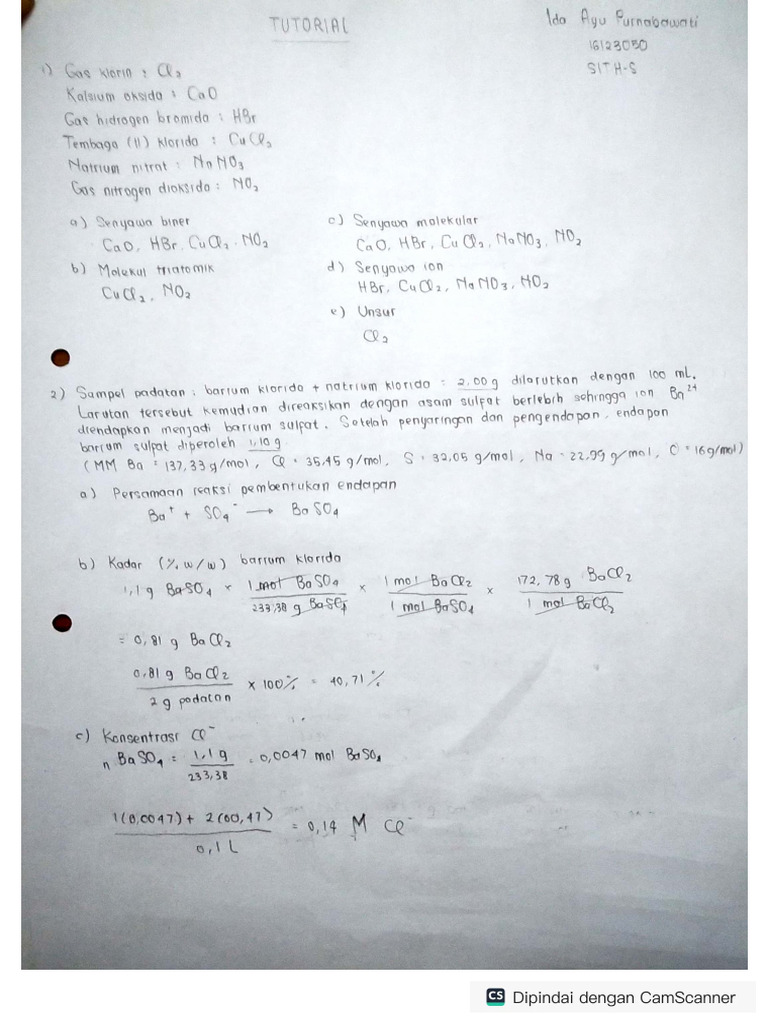 TUTORIAL
Ida Ayu Purnabawati
16123050
SITH-S
1) Gas klorin : Cl₂
Kalsium oksida : CaO
Gas hidrogen bromida : HBr
Tembaga (II) klorida : CuCl₂
Natrium nitrat : NaNO₃
Gas nitrogen dioksida : NO₂
a) Senyawa biner
CaO, HBr, CuCl₂, NO₂
b) Molekul triatomik
CuCl₂, NO₂
c) Senyawa molekular
CaO, HBr, CuCl₂, NaNO₃, NO₂
d) Senyawa ion
HBr, CuCl₂, NaNO₃, NO₂
e) Unsur
Cl₂
2) Sampel padatan : barium klorida + natrium klorida : 2,00 g dilarutkan dengan 100 mL.
Larutan tersebut kemudian direaksikan dengan asam sulfat berlebih sehingga ion Ba²⁺
diendapkan menjadi barium sulfat. Setelah penyaringan dan pengendapan, endapan
barium sulfat diperoleh 1,10 g
(MM Ba = 137,33 g/mol, Cl = 35,45 g/mol, S = 32,05 g/mol, Na = 22,99 g/mol, O = 16 g/mol)
a) Persamaan reaksi pembentukan endapan
Ba⁺ + SO₄⁻ → BaSO₄
b) Kadar (% w/w) barium klorida
1,1 g BaSO₄ × 1 mol BaSO₄ / 233,38 g BaSO₄ × 1 mol BaCl₂ / 1 mol BaSO₄ × 172,78 g BaCl₂ / 1 mol BaCl₂
= 0,81 g BaCl₂
0,81 g BaCl₂ / 2 g padatan × 100% = 40,71%
c) Konsentrasi Cl⁻
n BaSO₄ = 1,1 g / 233,38 = 0,0047 mol BaSO₄
1(0,0047) + 2(00,47) / 0,1 L = 0,14 M Cl⁻
CS Dipindai dengan CamScanner